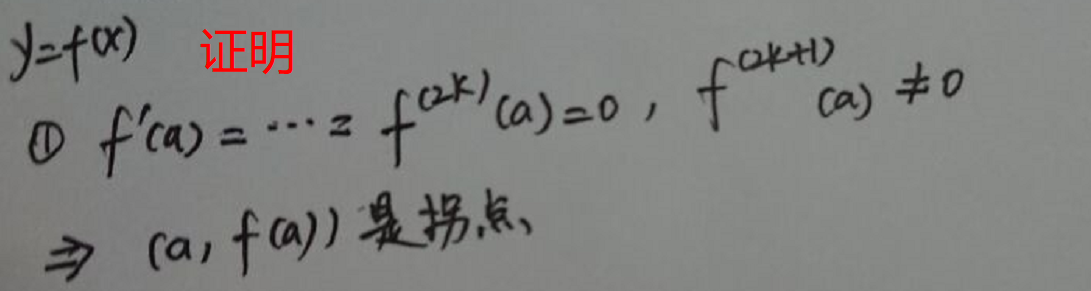 y=f(x) 证明
① f'(a) = ⋯ = f^(2k)(a)=0, f^(2k+1)(a) ≠0
⇒ (a, f(a)) 是拐点、